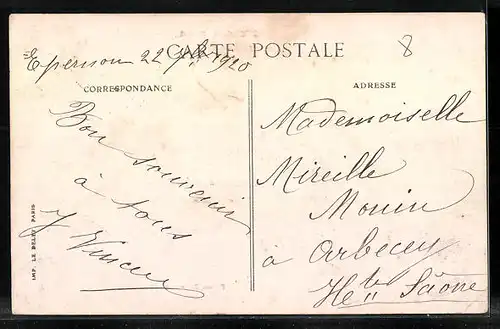 CARTE POSTALE
8
Epernon 22 7bre 1920
CORRESPONDANCE
Bon souvenir
à tous
J Vincent
ADRESSE
Mademoiselle
Mireille
Monin
à Arbecey
Hte Saône
IMP. LE DELEY PARIS